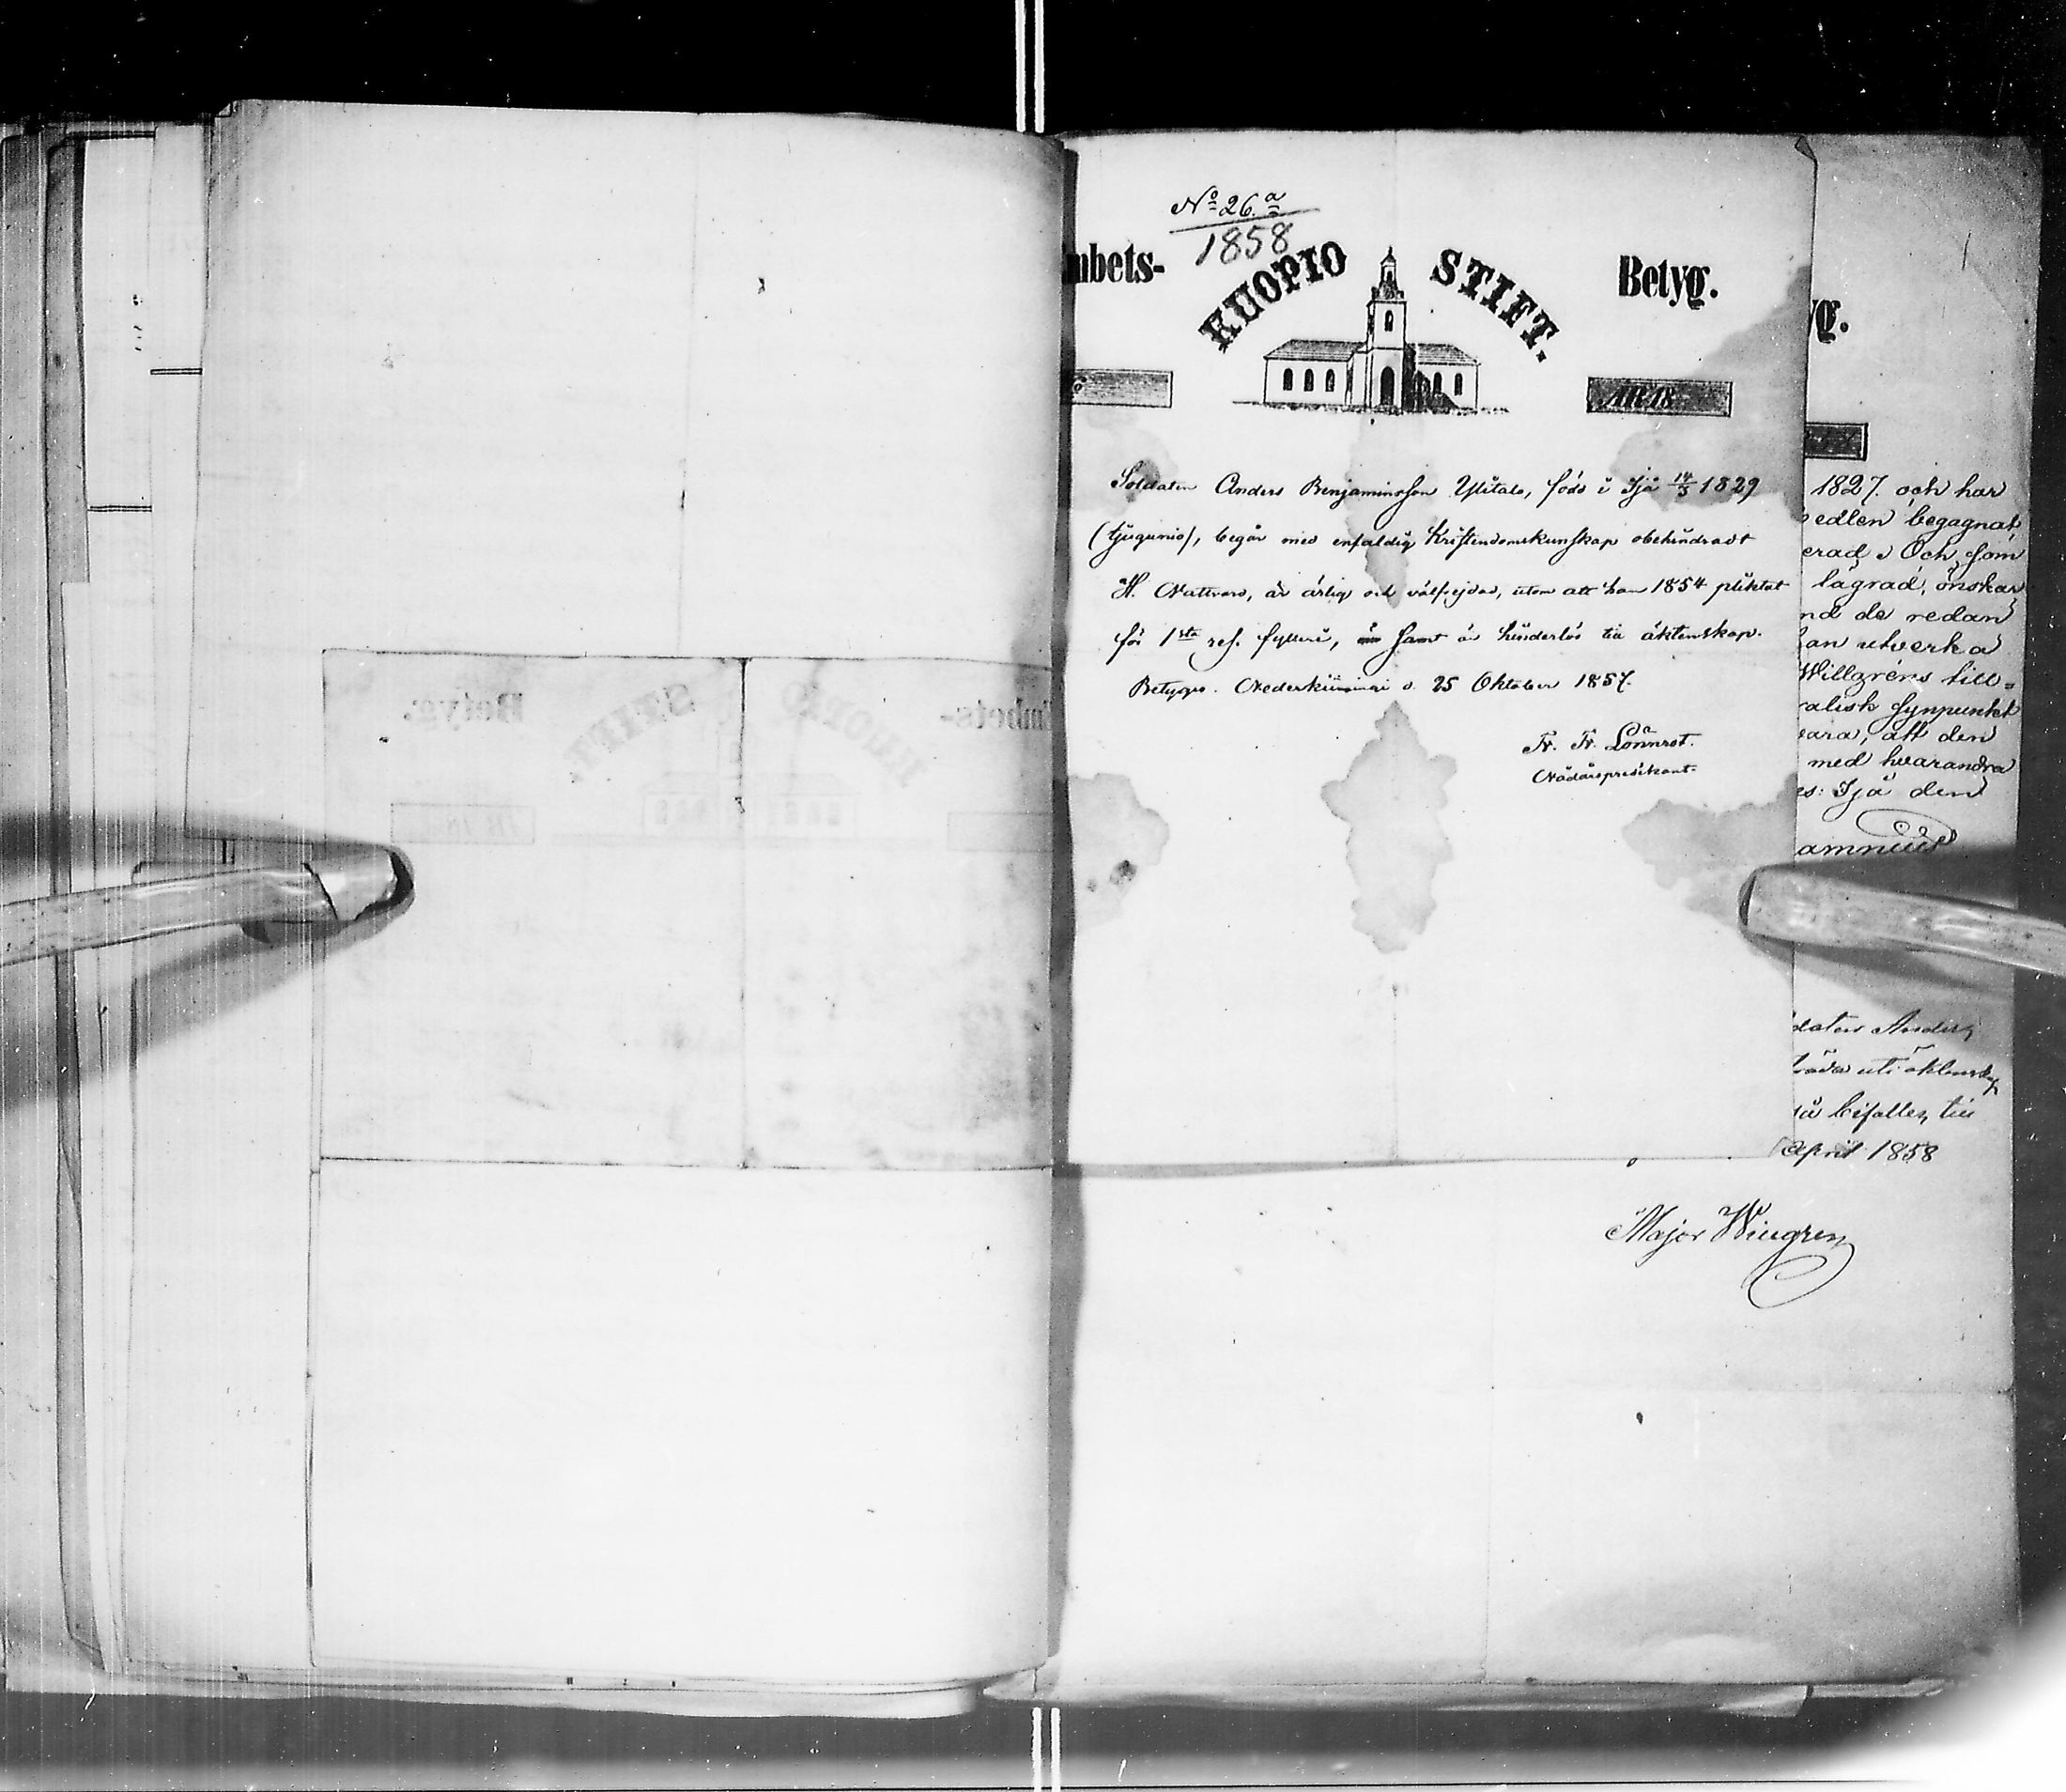 No 26.a
1858
mbets-
KUOPIO STIFT.
Betyg.
AR 18
Soldaten Anders Benjaminsson Ylitalo, född i Ijå 14/3 1829
(tjugunio), begår med enfaldig Kristendomskunskap obehindradt
H. Nattvard, är ärlig och välfrejdad, utom att han 1854 pliktat
för 1sta res. fylleri, samt är hinderlös till äktenskap.
Betygas. Nederkiiminki d. 25 Oktober 1857.
Fr. Fr. Lönnrot.
Nådårspredikant.
yg.
1827. och har
edlen begagnat
erad. Och som
lagrad, önskar
nd de redan
an utverka
Willgréns till=
ralisk synpunkt
vara, att den
med hvarandra
es: Ijå den
amnius
daten Anders
båda uti äktenskap
så bifalles till
April 1858
Major Wingren
Betyg.
STIFT.
KUOPIO
mbets-